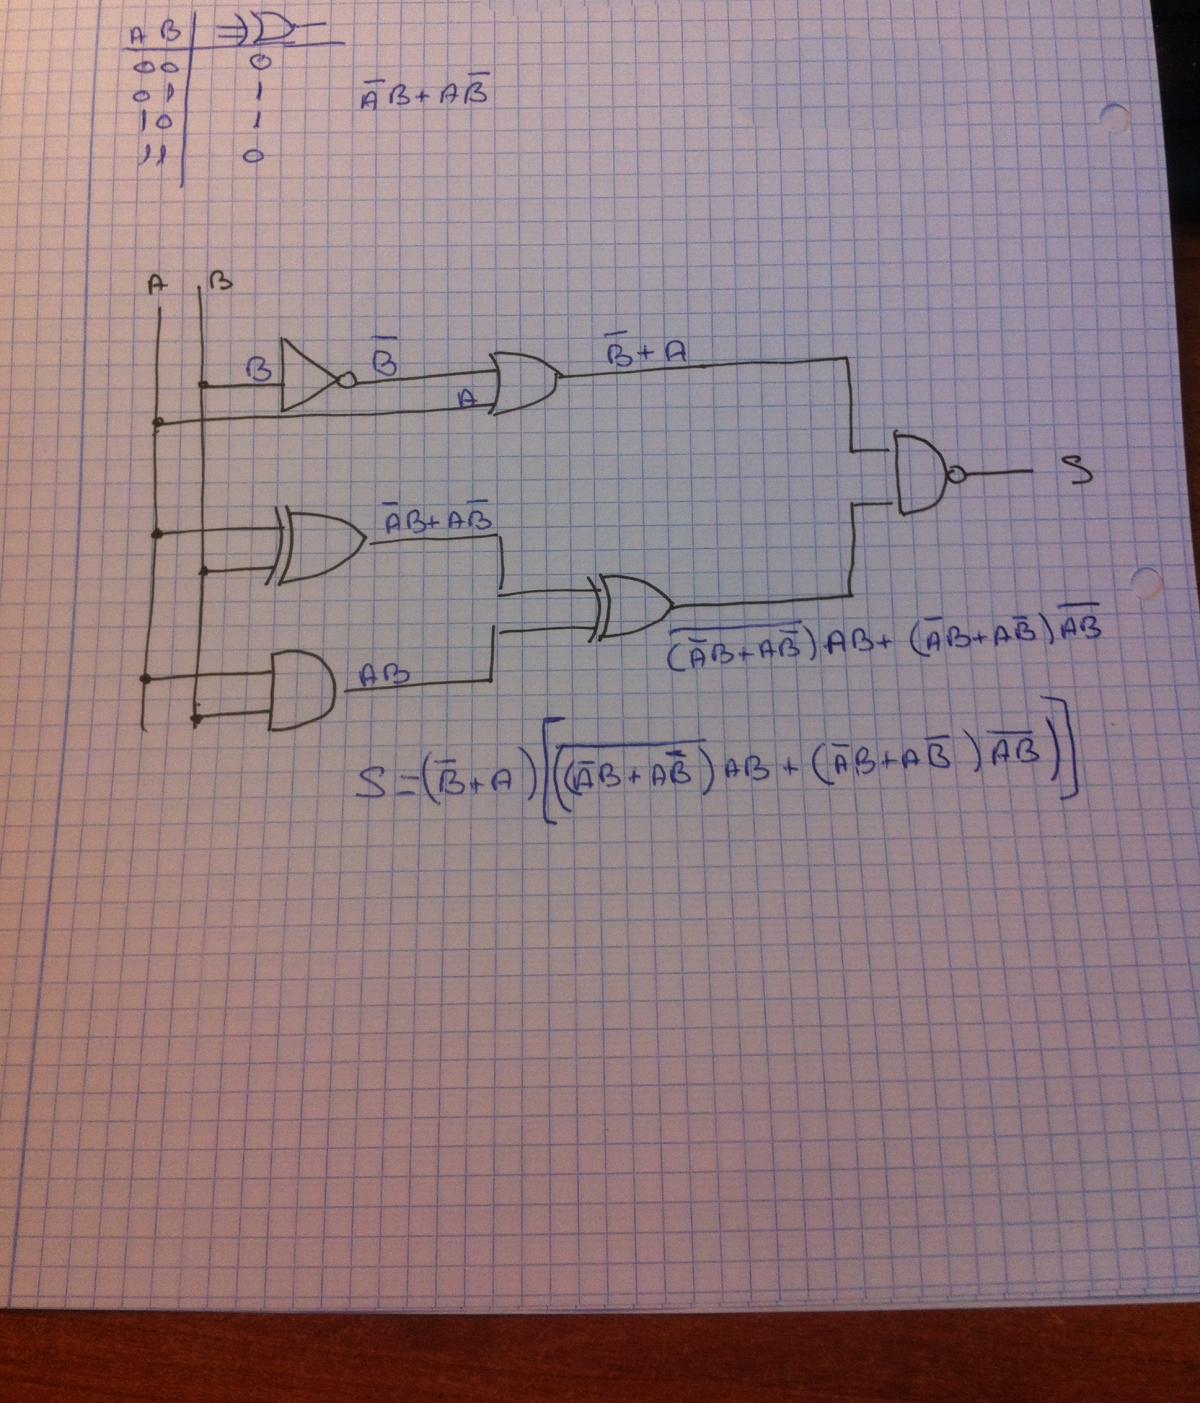 A B
0 0 0
0 1 1
1 0 1
1 1 0
A̅B + AB̅
A B
B B̅ A B̅ + A
S
A̅B + AB̅
AB
(A̅B + AB̅)̅ AB + (A̅B + AB̅) A̅B̅
S = (B̅ + A) [((A̅B + AB̅)̅ AB + (A̅B + AB̅) A̅B̅)]